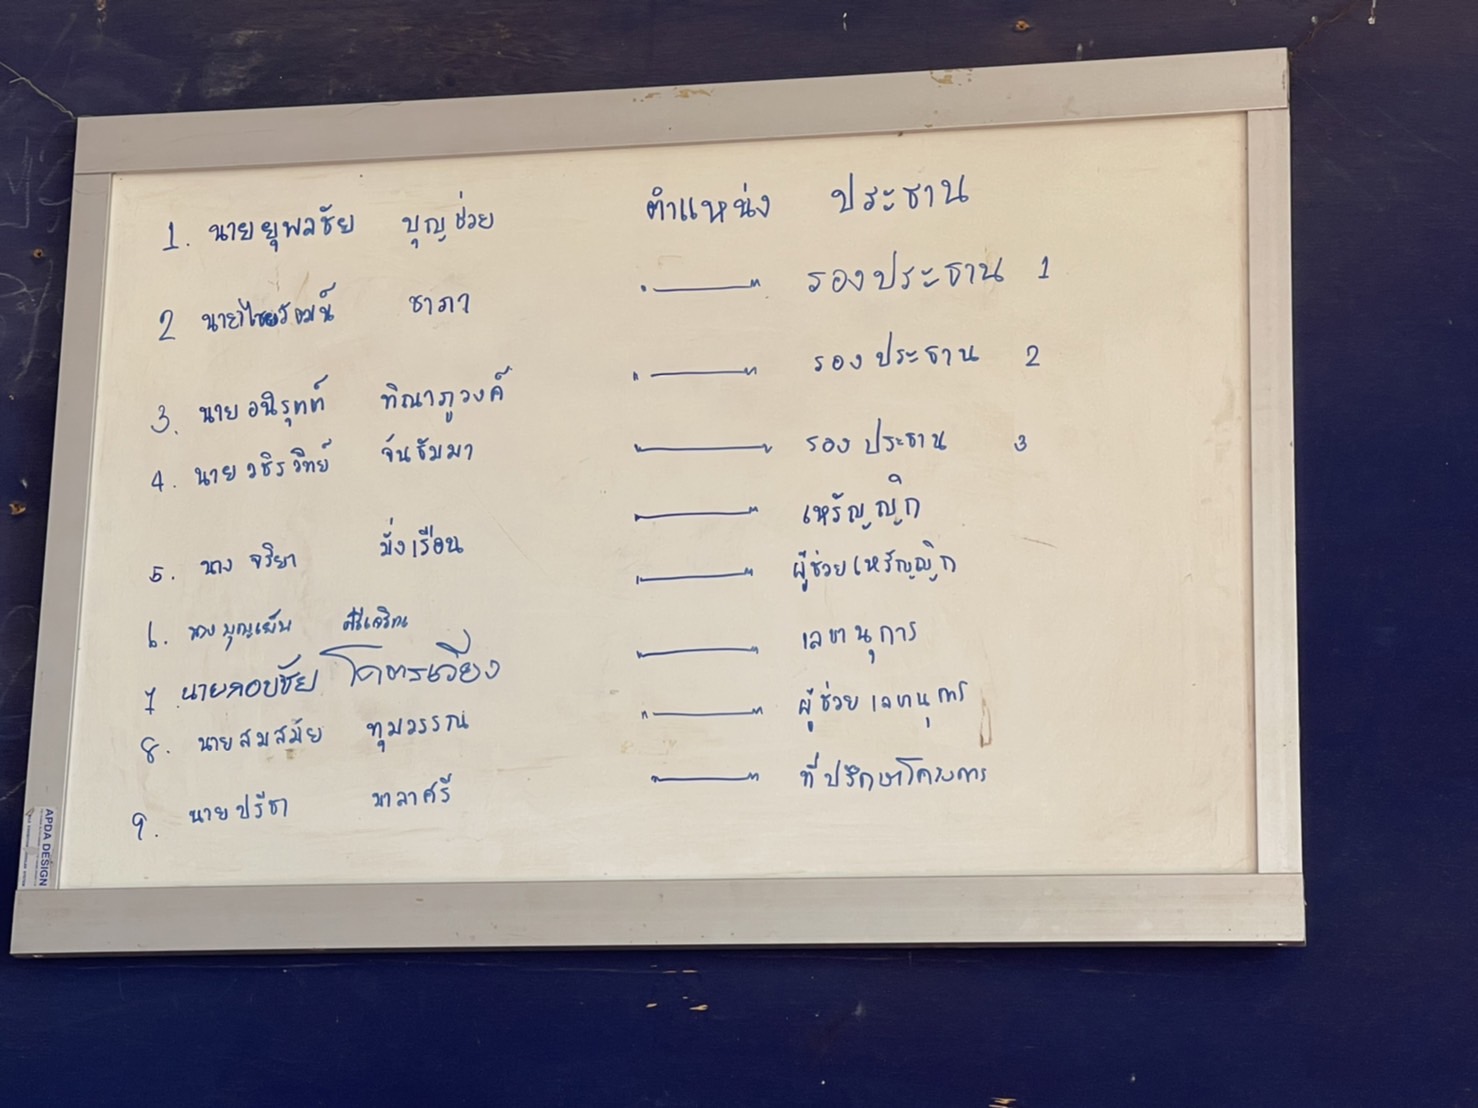 1. นายยุพลชัย บุญช่วย ตำแหน่ง ประธาน
2 ชาภา " รองประธาน 1
3. นายอนิรุทท์ ทิณาภูวงค์ " รองประธาน 2
4. นายวชิรวิทย์ จันธิมมา " รองประธาน 3
5. นาง จริยา มั่งเรือน " เหรัญญิก
6. นางบุญเย็น ศรีเจริญ " ผู้ช่วยเหรัญญิก
7 นายกอบชัย โคตรเวียง " เลขานุการ
8. นายสมสมัย ทุมวรรณ " ผู้ช่วยเลขานุการ
9. นายปรีชา มาลาศรี " ที่ปรึกษาโครงการ
APDA DESIGN